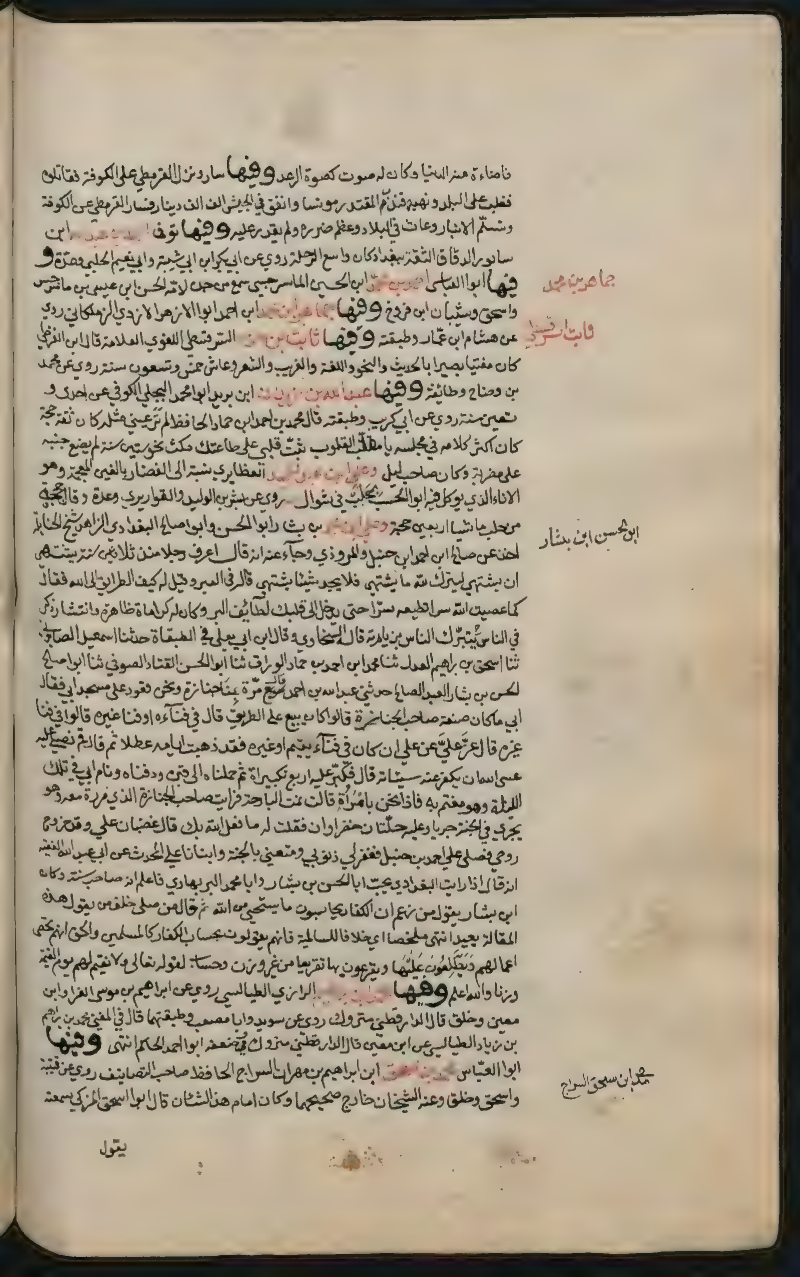 فاضاءة منه الدنيا وكان له صوت كصوة الرعد وفيها سار ونزل القرمطي على الكوفة فقاتلوه
فغلب على البلد ونهبه فندب المقتدر مونسا وانفق في الجيش الف الف دينار فسار القرمطي عن الكوفة
وتسلم الانبار وعاث في البلاد وعظم ضرره ولم يقدر عليه وفيها توفى ابن
سابور الدقاق الثقة ببغداد كان واسع الرحلة روي عن ابي بكر ابن ابي شيبة وابي نعيم الحلبي وعدة و
فيها ابوا العباس احمد بن محمد ابن الحسين الماسرجسي سمع من جده لامه الحسن ابن عيسى بن ماسرجس
واسحق وشيبان ابن فروخ وفيها جماهر ابن محمد ابن احمد ابوا الازهر الازدي الزملكاني روي
عن هشام ابن عمار وطبقته وفيها ثابت بن حزم السرقسطي اللغوي العلامة قال ابن الفرضي
كان مفتيا بصيرا بالحديث والنحو واللغة والغريب والشعر وعاش خمس وتسعون سنة روي عن محمد
بن وضاح وطائفة وفيها عبد الله بن زيدان ابن بريد ابوا محمد البجلي الكوفي عن احدى و
تسعين سنة روي عن ابي كريب وطبقته قال محمد بن احمد ابن حماد الحافظ لم تر عيني مثله كان ثقة حجة
كان اكثر كلامه في مجلسه يا مقلب القلوب ثبت قلبي على طاعتك مكث نحو ستين سنة لم يضع جنبه
على مضربة وكان صاحب ليل وعلي ابن عبد الحميد الغظايري نسبة الى الغضار بالغين المعجمة وهو
الاناء الذي يوكل فيه ابوا الحسن بحلب في شوال روي عن بشر بن الوليد والقواريري وعدة وقال حججت
من حلب ماشيا اربعين حجة وعلي ابن محمد بن بشار ابوا الحسن وابوا صالح البغدادي الزاهد شيخ الحنابلة
اخذ عن صالح ابن احمد ابن حنبل والمروذي وجاء عنه انه قال اعرف رجلا منذ ثلاثين سنة يشتهى
ان يشتهي ليترك لله ما يشتهي فلا يجد شيئا يشتهي قاله في العبر وقيل له كيف الطريق الى الله فقال
كما عصيت الله سرا تطيعه سرا حتى يدخل الى قلبك لطائف البر وكان له كرامات ظاهرة وانتشار ذكر
في الناس يتبرك الناس بزيارته قاله السخاوي وقال ابن ابي يعلى في الطبقاة حدثنا اسمعيل الصابوني
ثنا اسحق بن براهيم العدل ثنا محمد ابن احمد بن حماد الوراق ثنا ابوا الحسن القتاد الصوفي ثنا ابوا صالح
لحسن بن بشار العبد الصالح حدثني عبد الله بن احمد قال مرة بنا جنازة ونحن قعود على مسجد ابي فقال
ابي ما كان صنعة صاحب الجنازة قالوا كان يبيع على الطريق قال في فنآءه او فنا غيره قالوا في فنا
غيره قال عز علي عز علي ان كان في فنآء يتيم او غيره فقد ذهبت ايامه عطلا ثم قال قم نصلي عليه
عسى الله ان يكفر عنه سيئاته قال فكبر عليه اربع تكبيراة ثم حملناه الى قبره ودفناه ونام ابي في تلك
الليلة وهو مغتم به فاذا نحن بامرأة قالت نمت البارحة فرايت صاحب الجنازة الذي مررة معه وهو
يجري في الجنة جريا وعليه حلتان خضراوان فقلت له ما فعل الله بك قال غضبان علي وقت خروج
روحي فصلى علي احمد بن حنبل فغفر لي ذنوبي ومتعني بالجنة وانبانا علي المحدث عن ابي عبد الله الفقيه
انه قال اذا رايت البغدادي يحب ابا الحسن بن بشار وابا محمد البربهاري فاعلم انه صاحب سنة وكان
ابن بشار يقول من زعم ان الكفار يحاسبون ما يستحيى من الله ثم قال من صلى خلف من يقول هذه
المقالة يعيد انتهى ملخصا اي خلافا للسالمية فانهم يقولون بحساب الكفار كالمسلمين والحق انهم تحصى
اعمالهم ويطلعون عليها ويقرعون بها تقريعا من غير وزن وحساب لقوله تعالى ولا نقيم لهم يوم القيمة
وزنا والله اعلم وفيها الرازي الطيالسي روي عن ابراهيم بن موسى الفرا وابن
معين وخلق قال الدارقطني متروك روي عن سويد وابا مصعب وطبقتهما قال في المغني محمد بن براهيم
بن زياد الطيالسي عن ابن معين قال الدارقطني متروك وضعفه ابوا احمد الحاكم انتهى وفيها
ابوا العباس محمد بن اسحق ابن ابراهيم بن مهران السراج الحافظ صاحب التصانيف روي عن قتيبة
واسحق وخلق وعنه الشيخان خارج صحيحيهما وكان امام هذا الشان قال ابوا اسحق المزكي سمعته
يقول
جماهر بن محمد
ثابت السرقسطي
ابو الحسن ابن بشار
محمد ابن اسحق السراج